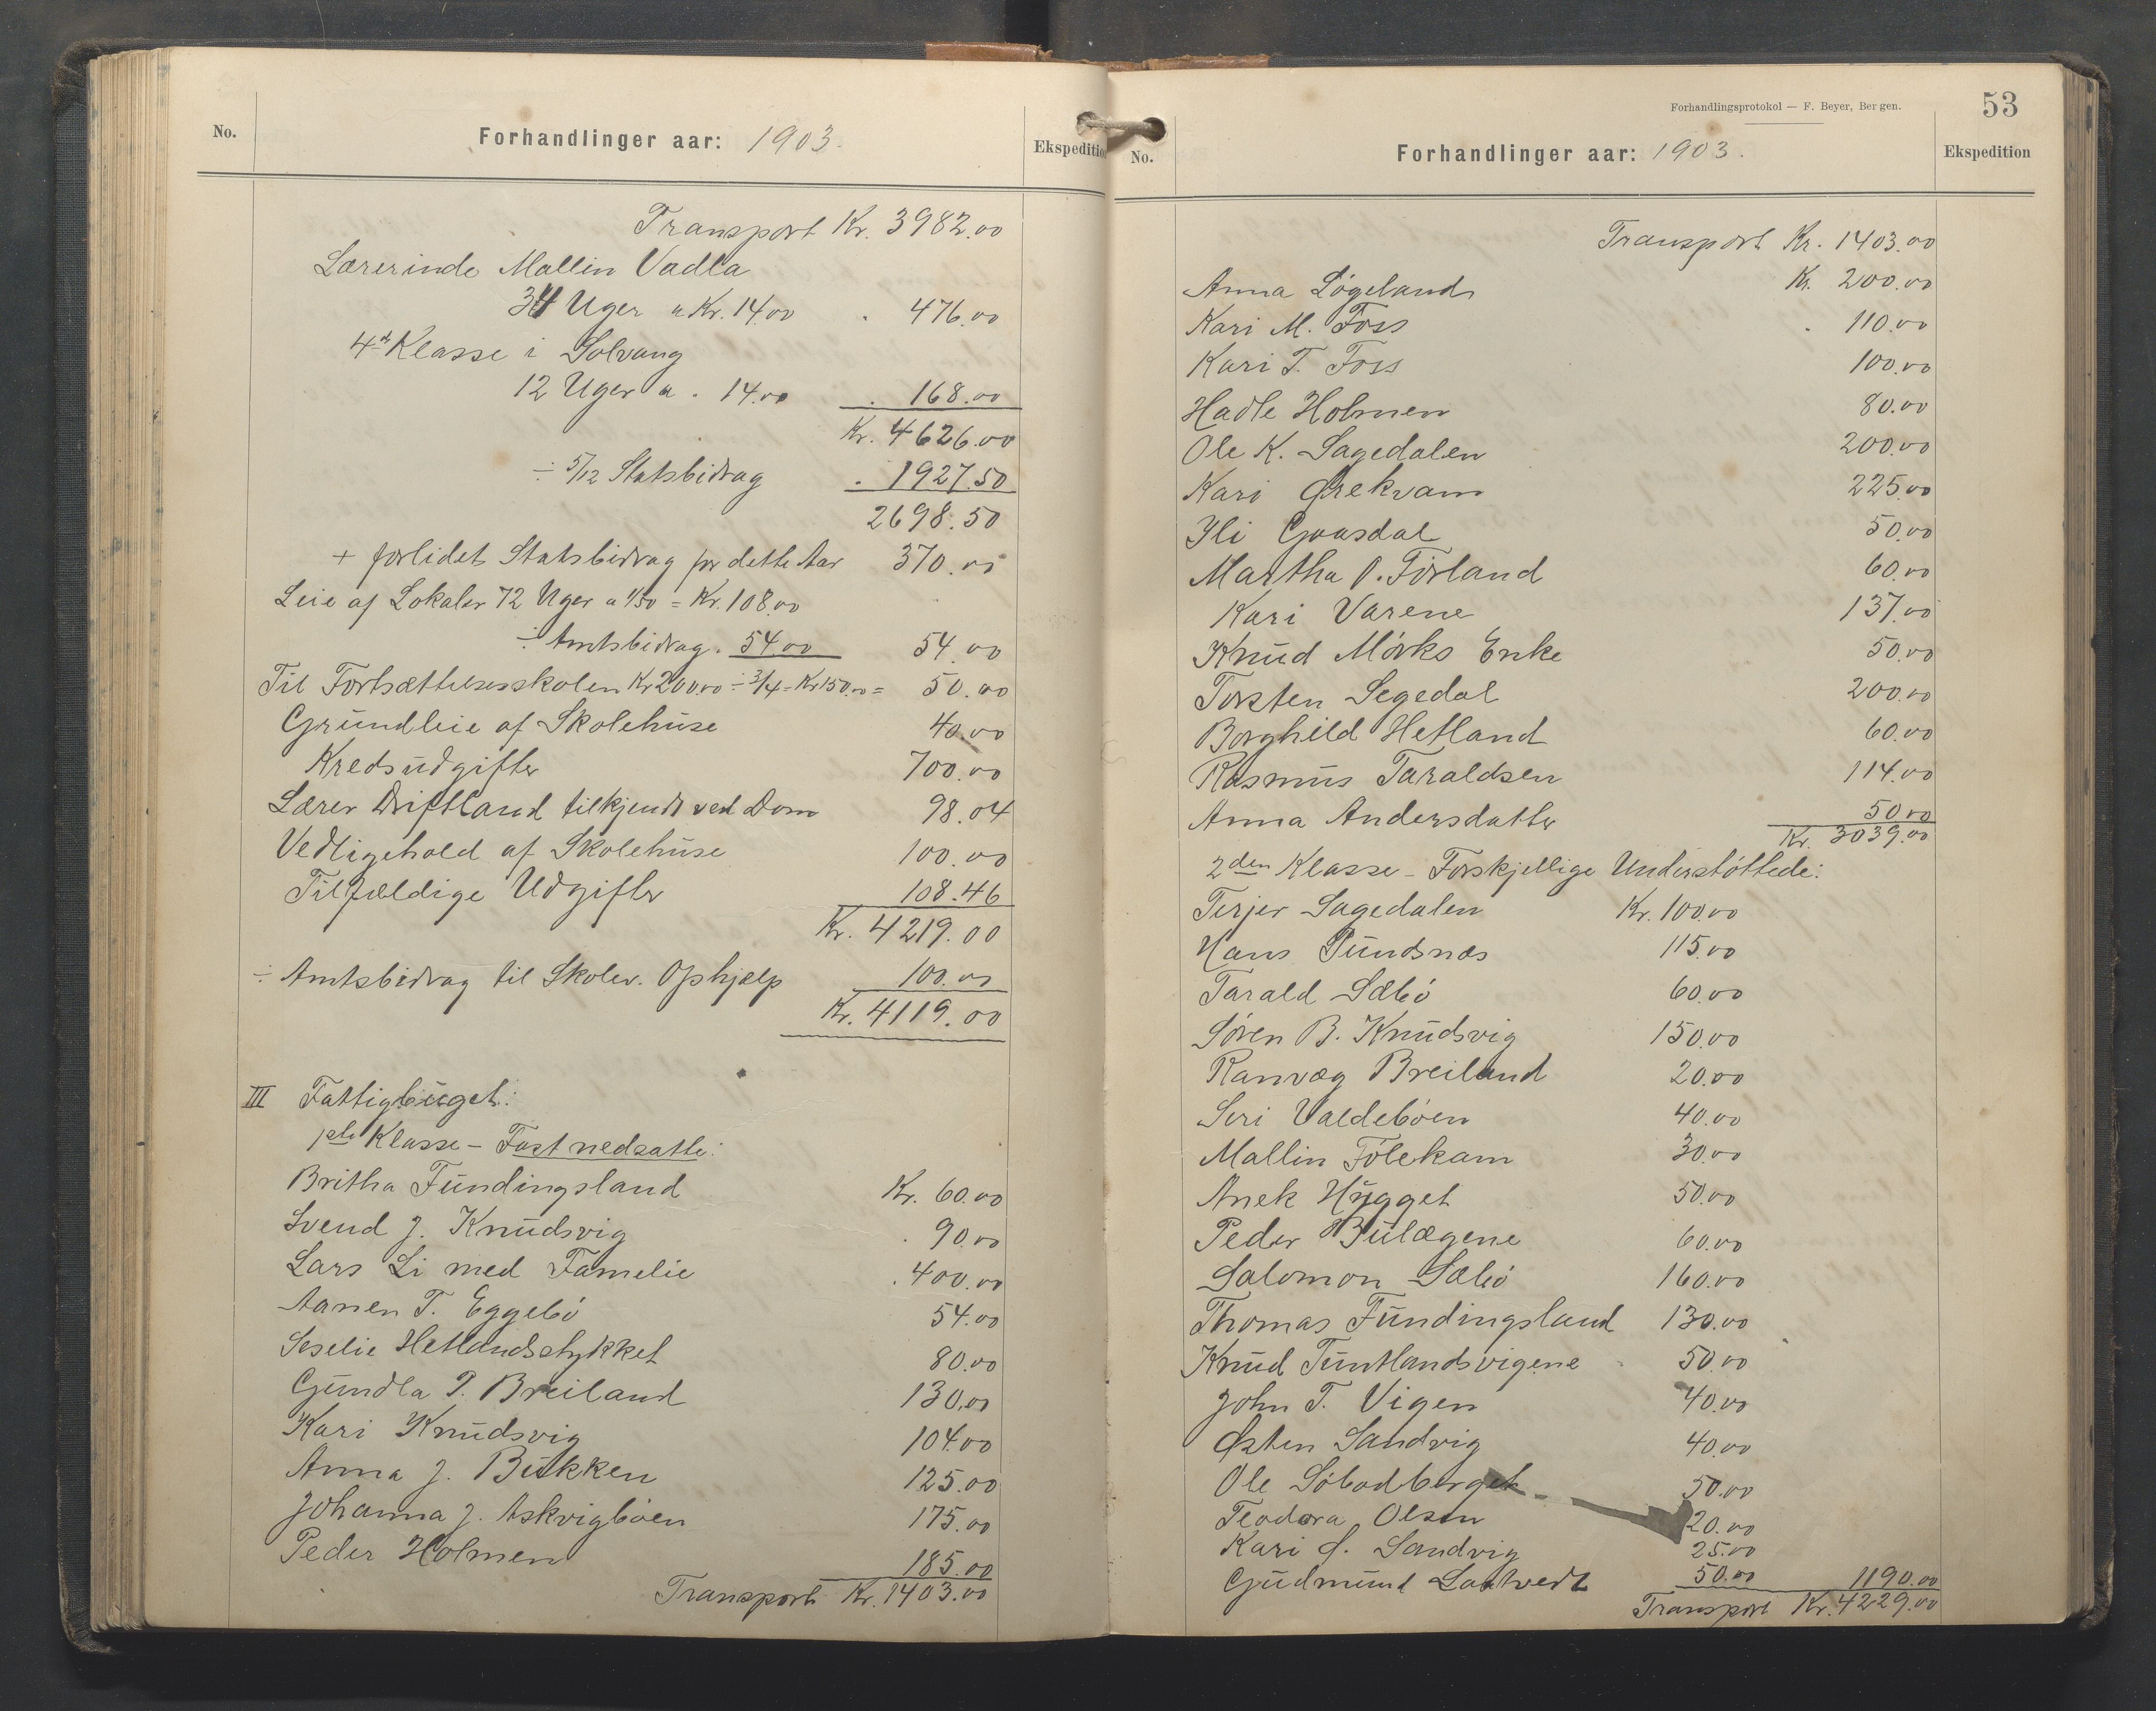 No.
Forhandlinger aar: 1903.
Ekspedition
Transport Kr. 3982.00
Lærerinde Mallin Vadla
34 Uger a Kr. 14.00 . 476.00
4de Klasse i Solvang
12 Uger a . 14.00 . 168.00
Kr. 4626.00
÷ 5/12 Statsbidrag . 1927.50
2698.50
+ forlidet Statsbidrag for dette Aar 370.00
Leie af Lokaler 72 Uger a 1/50 = Kr. 108.00
÷ Amtsbidrag . 54.00 54.00
Til Fortsættelsesskolen Kr 200.00 ÷ 3/4 = Kr 150.00 = 50.00
Grundleie af Skolehuse 40.00
Kredsudgifter 700.00
Lærer Driftland tilkjendt ved Dom 98.04
Vedligehold af Skolehuse 100.00
Tilfældige Udgifter 108.46
Kr. 4219.00
÷ Amtsbidrag til Skolev. Ophjælp 100.00
Kr. 4119.00
III Fattigbuget:
1ste Klasse – Fast nedsatte:
Britha Fundingsland Kr. 60.00
Svend J. Knudsvig . 90.00
Lars Li med Familie . 400.00
Aanen T. Eggebö 54.00
Seselie Hetlandsstykket 80.00
Gundla P. Breiland 130.00
Kari Knudsvig 104.00
Anna J. Bukken 125.00
Johanna J. Askvigböen 175.00
Peder Holmen 185.00
Transport Kr. 1403.00
Forhandlingsprotokol — F. Beyer, Bergen.
53
No.
Forhandlinger aar: 1903.
Ekspedition
Transport Kr. 1403.00
Anna Lögeland Kr. 200.00
Kari M. Foss . 110.00
Kari T. Foss 100.00
Hadle Holmen 80.00
Ole K. Sagedalen 200.00
Kari Ørekvam 225.00
Ili Gaasdal 50.00
Martha O. Förland 60.00
Kari Varene 137.00
Knud Mörks Enke 50.00
Torsten Segedal 200.00
Borghild Hetland 60.00
Rasmus Taraldsen 114.00
Anna Andersdatter 50.00
Kr. 3039.00
2den Klasse – Forskjellige Understöttede:
Terjer Sagedalen Kr. 100.00
Hans Sundsnæs 115.00
Tarald Sæbö 60.00
Søren B. Knudsvig 150.00
Ranvæg Breiland 20.00
Seri Valdeböen 40.00
Mallin Fölekam 30.00
Anek Hygget 50.00
Peder Bulægene 60.00
Salomon Sæbö 160.00
Thomas Fundingsland 130.00
Knud Tuntlandsvigene 50.00
John T. Vigen 40.00
Østen Sandvig 40.00
Ole Söbodberget 50.00
Teodora Olsen 20.00
Kari O. Sandvig 25.00
Gudmund Laatvedt 50.00 1190.00
Transport Kr. 4229.00